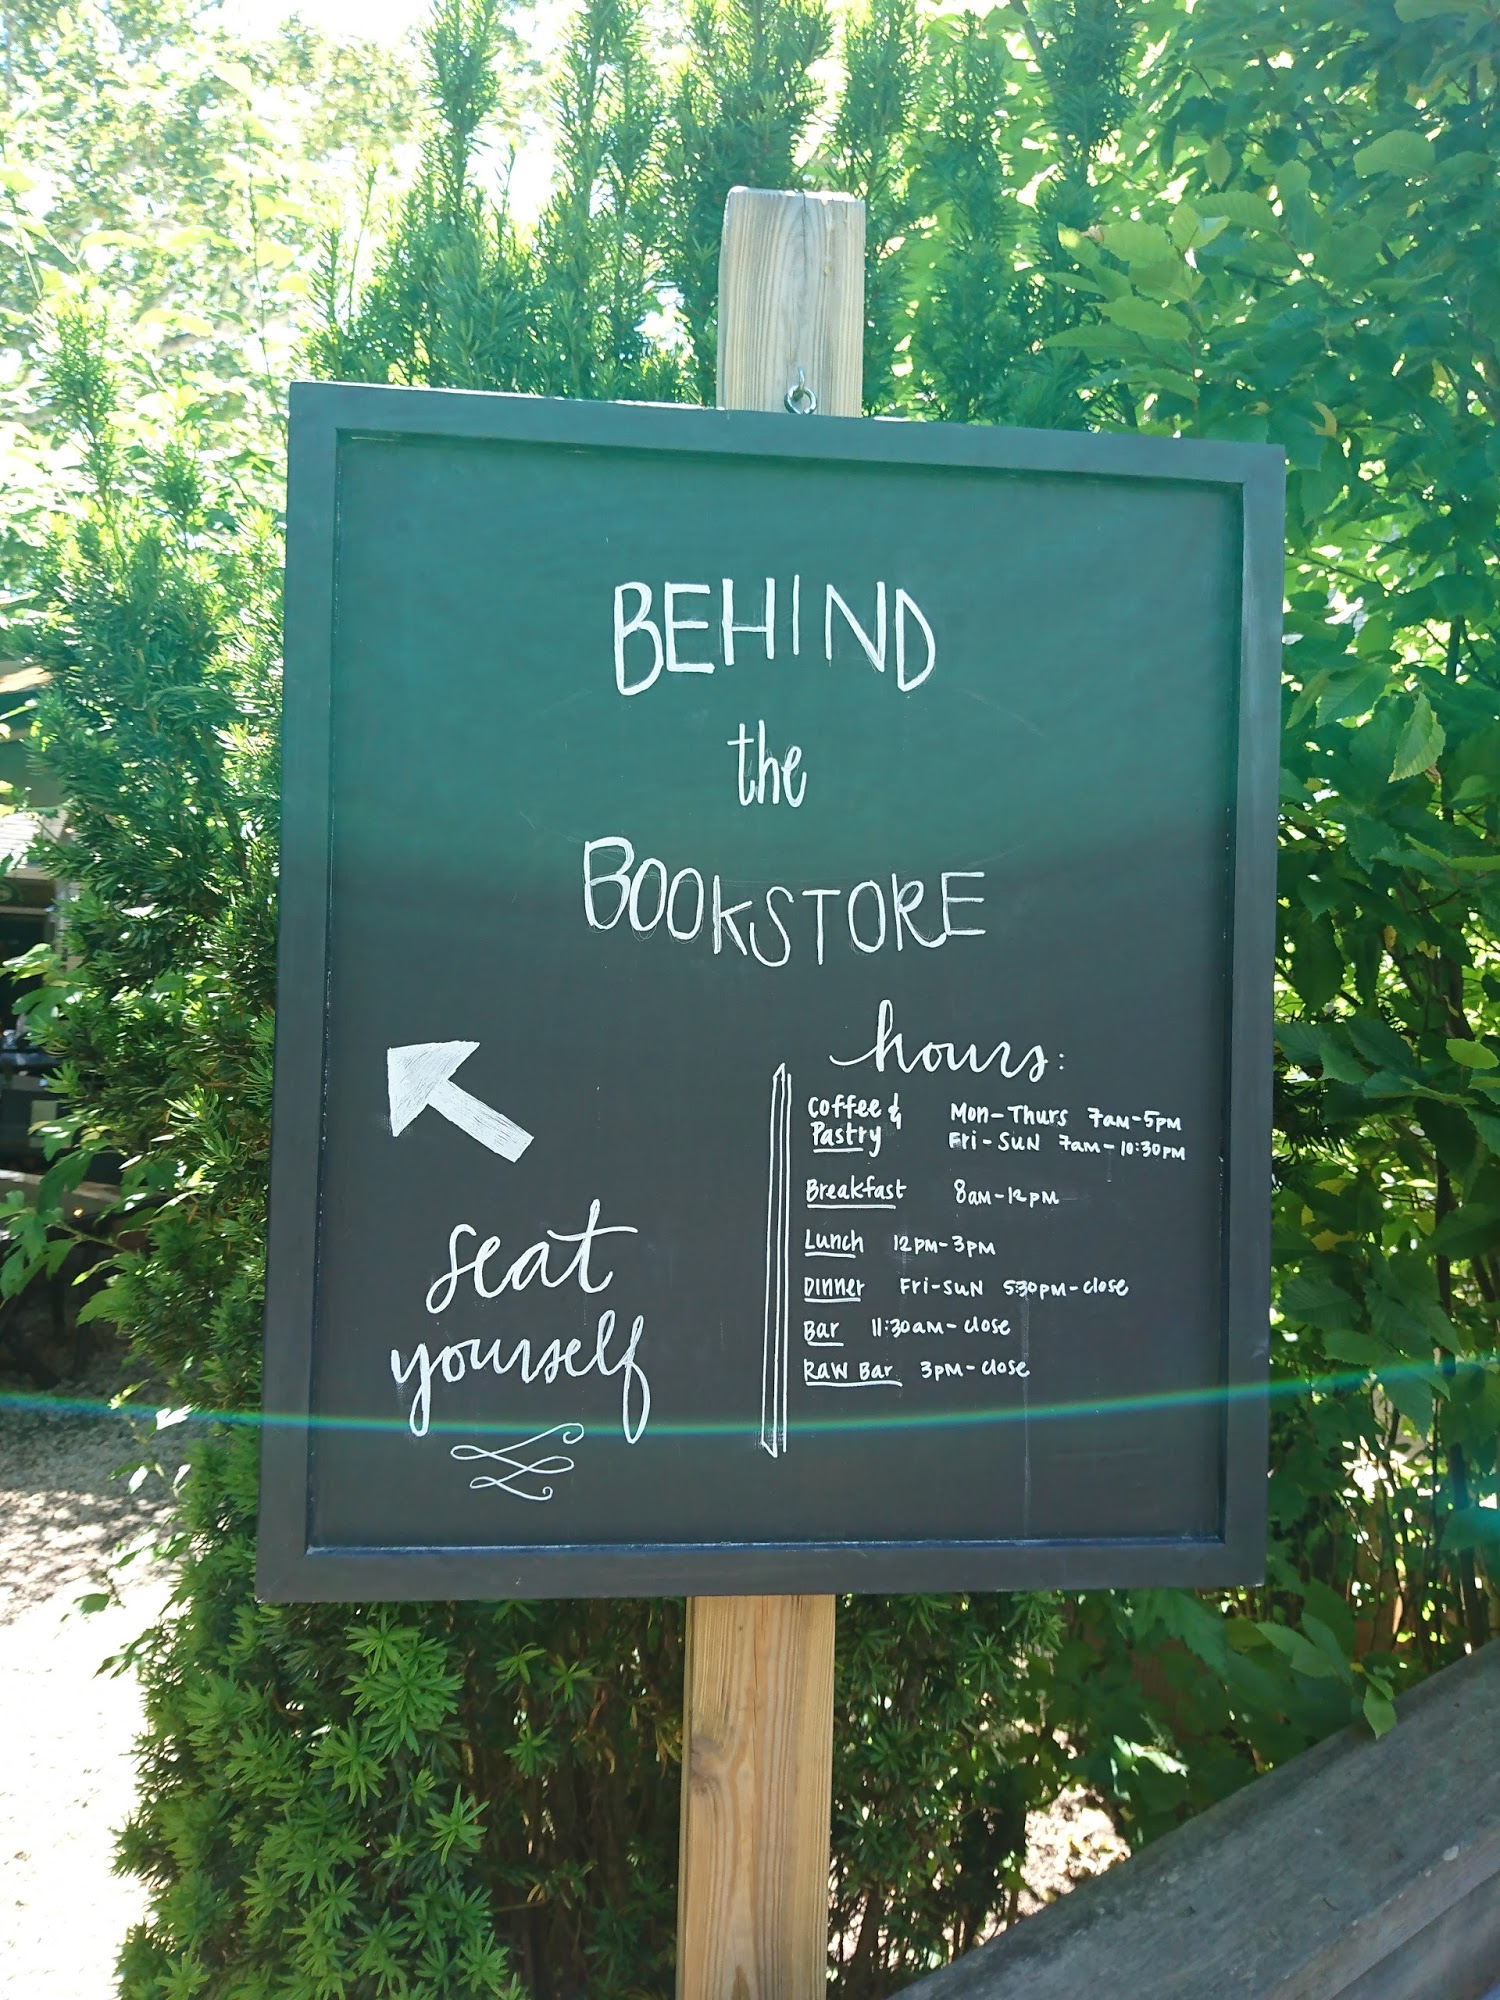 BEHIND
the
BOOKSTORE
seat
yourself
hours:
Coffee & Mon-Thurs 7am-5pm
Pastry Fri-Sun 7am-10:30pm
Breakfast 8am-12pm
Lunch 12pm-3pm
Dinner Fri-Sun 5:30pm-close
Bar 11:30am-close
Raw Bar 3pm-close